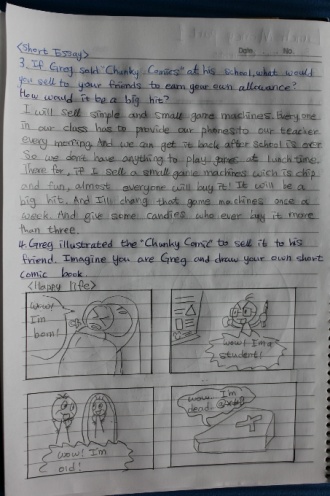 <Short Essay>
Date. No.
3. If Greg sold "Chunky Comics" at his school, what would
you sell to your friends to earn your own allowance?
How would it be a big hit?
I will sell simple and small game machines. Every one
in our class has to provide our phones to our teacher
every morning. And we can get it back after school is over
So we don't have anything to play games at lunch time.
There for, if I sell a small game machine wich is chip
and fun, almost everyone will buy it! It will be a
big hit. And I'll chang that game machines once a
week. And give some candies who ever buy it more
than three.
4. Greg illustrated the "Chunky Comic" to sell it to his
friend. Imagine you are Greg and draw your own short
comic book.
<Happy life>
Wow!
I'm
born!
Wow! I'm a
student!
Wow! I'm
old!
Wow I'm
dead.